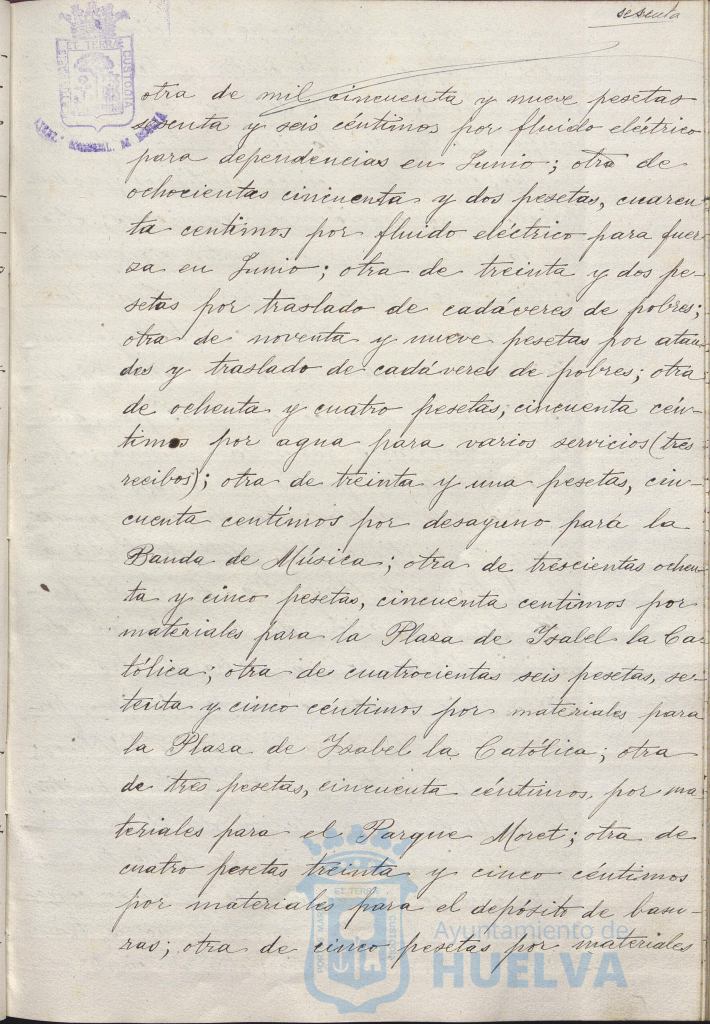 sesenta
otra de mil cincuenta y nueve pesetas
sesenta y seis céntimos por fluido eléctrico
para dependencias en Junio; otra de
ochocientas cincuenta y dos pesetas, cuaren-
ta centimos por fluido eléctrico para fuer-
za en Junio; otra de treinta y dos pe-
setas por traslado de cadáveres de pobres;
otra de noventa y nueve pesetas por ataú-
des y traslado de cadáveres de pobres; otra
de ochenta y cuatro pesetas, cincuenta cén-
timos por agua para varios servicios (tres
recibos); otra de treinta y una pesetas, cin-
cuenta centimos por desayuno para la
Banda de Música; otra de trescientas ochen-
ta y cinco pesetas, cincuenta centimos por
materiales para la Plaza de Isabel la Ca-
tólica; otra de cuatrocientas seis pesetas, se-
tenta y cinco céntimos por materiales para
la Plaza de Isabel la Católica; otra
de tres pesetas, cincuenta céntimos, por ma-
teriales para el Parque Moret; otra de
cuatro pesetas treinta y cinco céntimos
por materiales para el depósito de basu-
ras; otra de cinco pesetas por materiales
ET TERRÆ
CUSTODIA
Ayuntamiento de
HUELVA